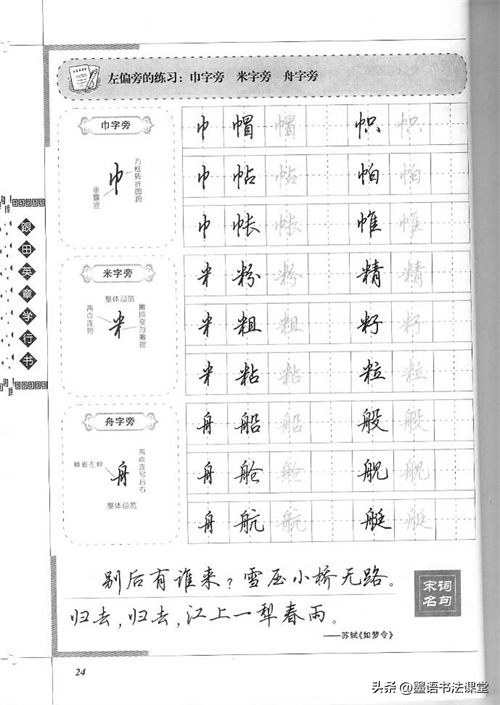 左偏旁的练习：巾字旁 米字旁 舟字旁
巾字旁
巾
方框转折圆润
垂露竖
巾 帽 帽 帜 帜
巾 帖 帖 帕 帕
巾 帐 帐 帷 帷
米字旁
整体靠左
两点连写
米
米 粉 粉 精 精
米 粗 粗 籽 籽
米 粘 粘 粒 粒
舟字旁
舟
两点连写居右
舟 船 船 般 般
舟 舱 舱 舰 舰
舟 航 航 艇 艇
跟田英章学行书
别后有谁来？雪压小桥无路。
归去，归去，江上一犁春雨。
——苏轼《如梦令》
宋词
名句
24
头条 @墨语书法课堂